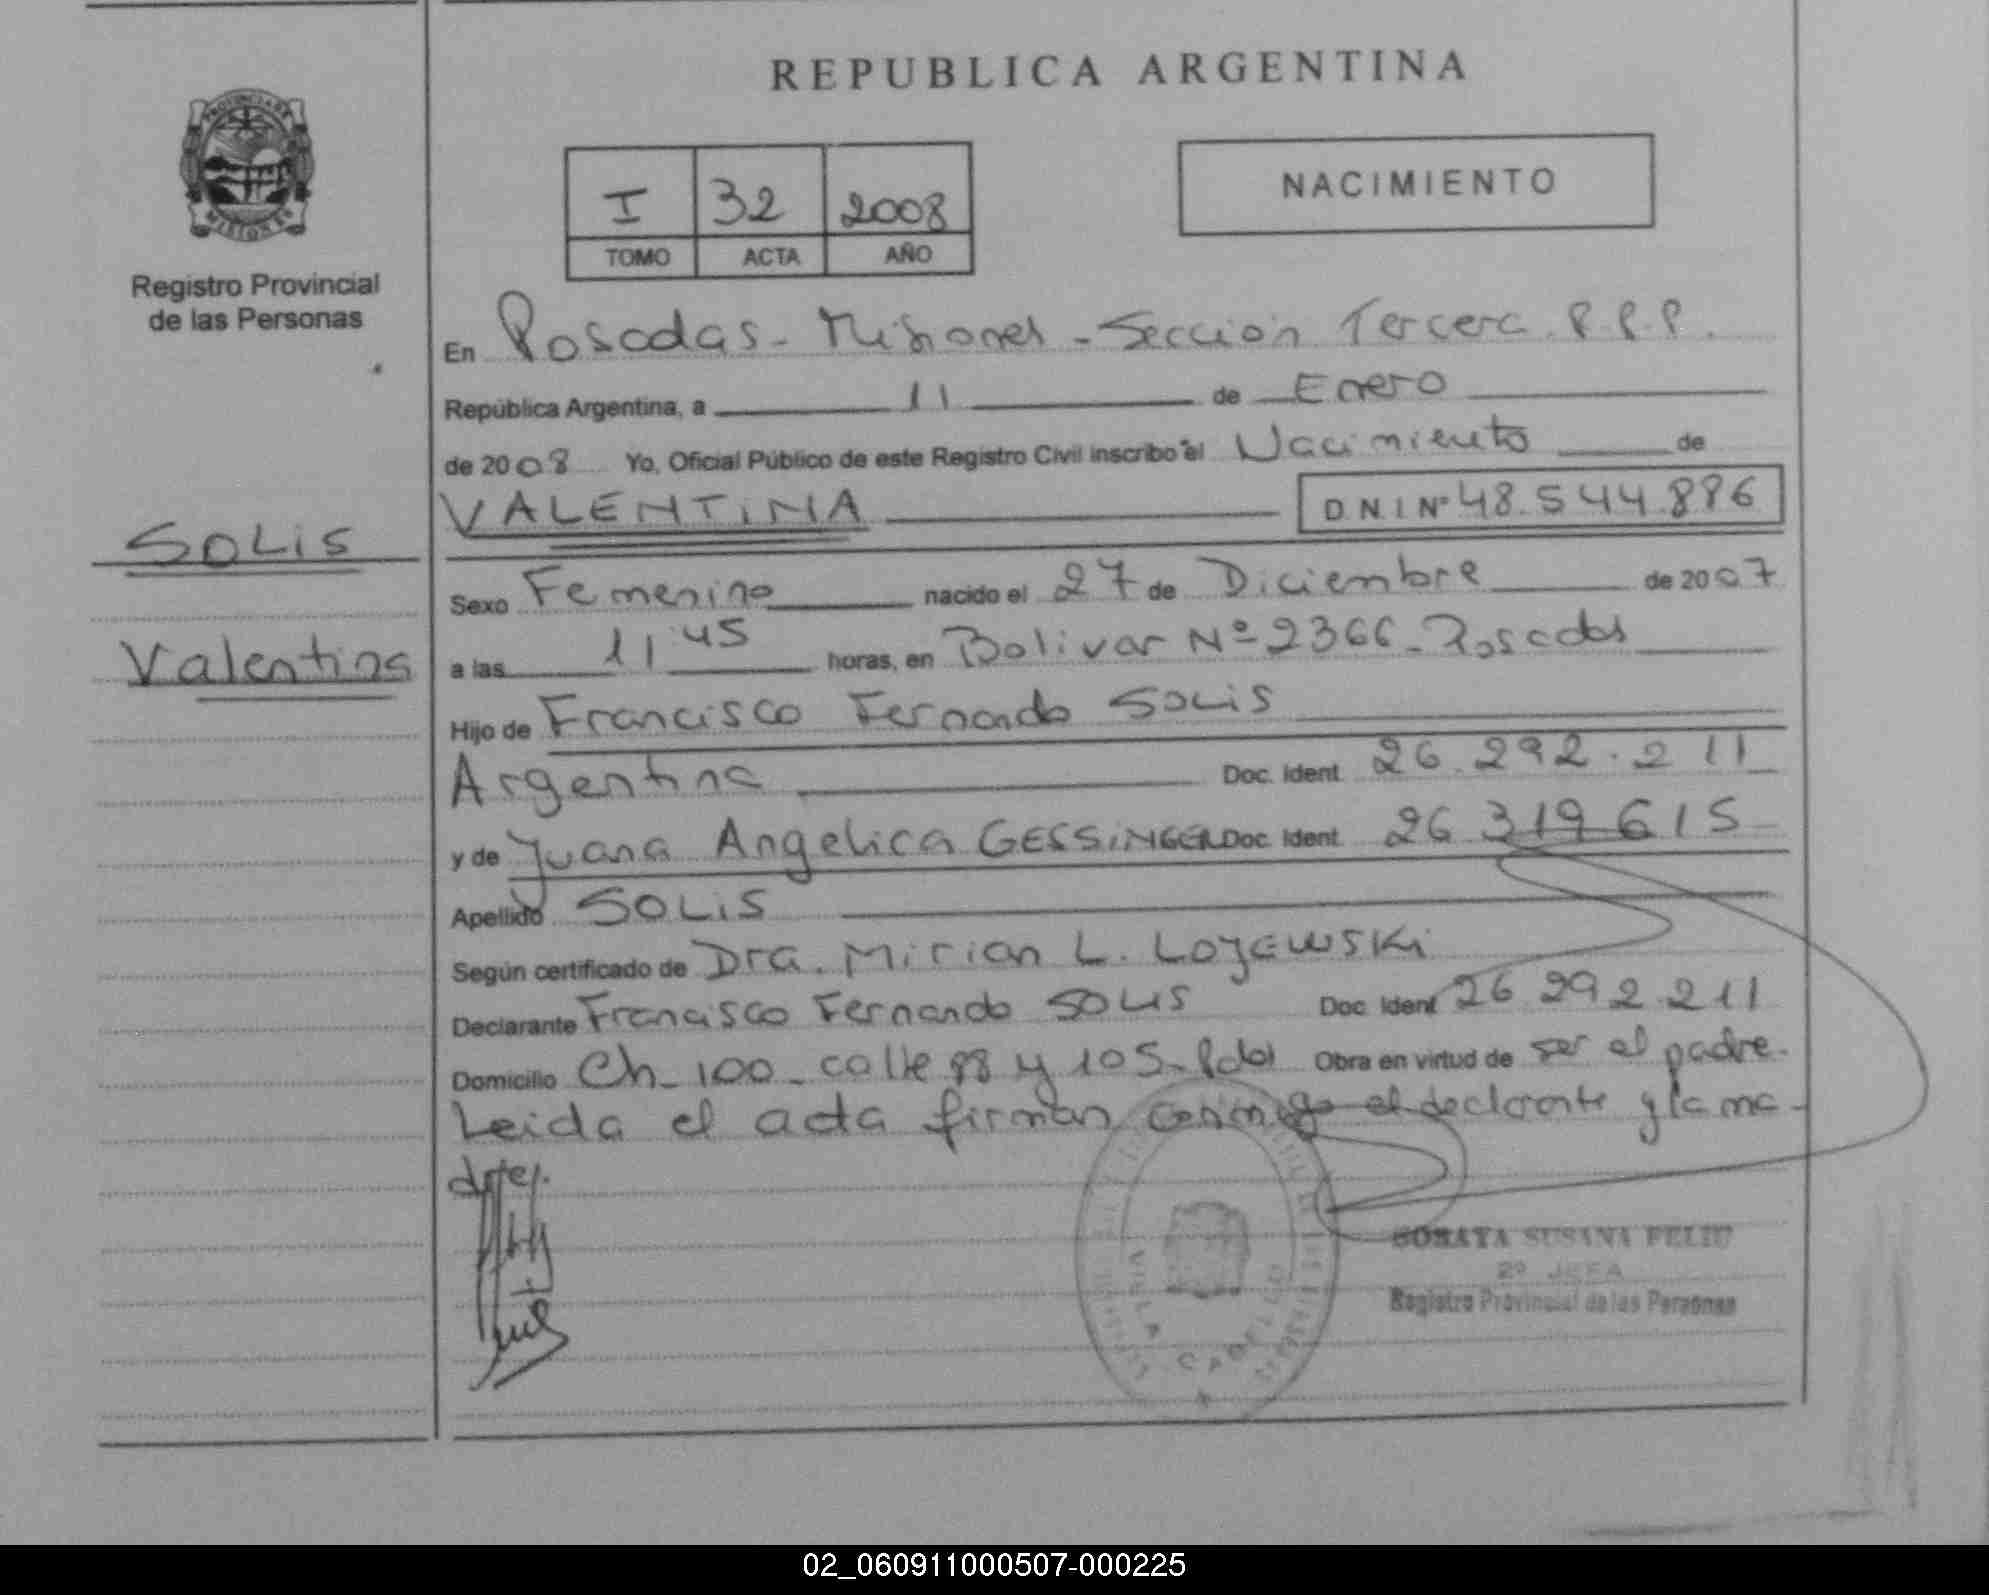 REPUBLICA ARGENTINA
PROVINCIA DE
MISIONES
Registro Provincial
de las Personas
I 32 2008
TOMO ACTA AÑO
NACIMIENTO
En Posadas - Misiones - Sección Tercera R.P.P.
República Argentina, a 11 de Enero
de 2008 Yo, Oficial Público de este Registro Civil inscribo el Nacimiento de
VALENTINA D.N.I Nº 48.544.886
SOLIS
Sexo Femenino nacido el 27 de Diciembre de 2007
Valentina
a las 11:45 horas, en Bolivar Nº 2366 - Posadas
Hijo de Francisco Fernando SOLIS
Argentina Doc. Ident. 26.292.211
y de Juana Angelica GESSINGER Doc. Ident. 26 319 615
Apellido SOLIS
Según certificado de Dra. Mirian L. LOJEWSKI
Declarante Francisco Fernando SOLIS Doc. Ident 26 292 211
Domicilio Ch - 100 - calle 98 y 105 - Pdas Obra en virtud de ser el padre.
Leida el acta firman conmigo el declarante y la ma-
dre/.
SORATA SUSANA FELIU
2º JEFA
Registro Provincial de las Personas
02_060911000507-000225